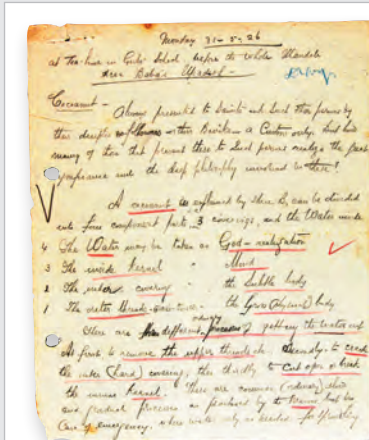 Monday 31-5-26
at Tea-time in Girls' School before the whole Mandali
Shree Baba's Updesh -
Cocoanut - Always presented to Saints and such other persons by
their disciples or followers or their Devotees a Custom only. But how
many of them that present these to such persons realize the fact
significance and the deep philosophy involved in these?
A cocoanut as explained by Shree B, can be divided
into four component parts, 3 coverings, and the Water inside
4 The Water may be taken as God-realization
3 The inside kernel " Mind
2 The outer covering " the Subtle body
1 The outer the Gross (Physical) body
There are different processes getting the water out
At first to remove the upper threads etc, secondly, to crack
the outer (hard) covering, then thirdly to Cut open or break
the inside kernel. These are common (ordinary) slow
and gradual processes as practised by to but in
Case of emergency, where water only is needed for